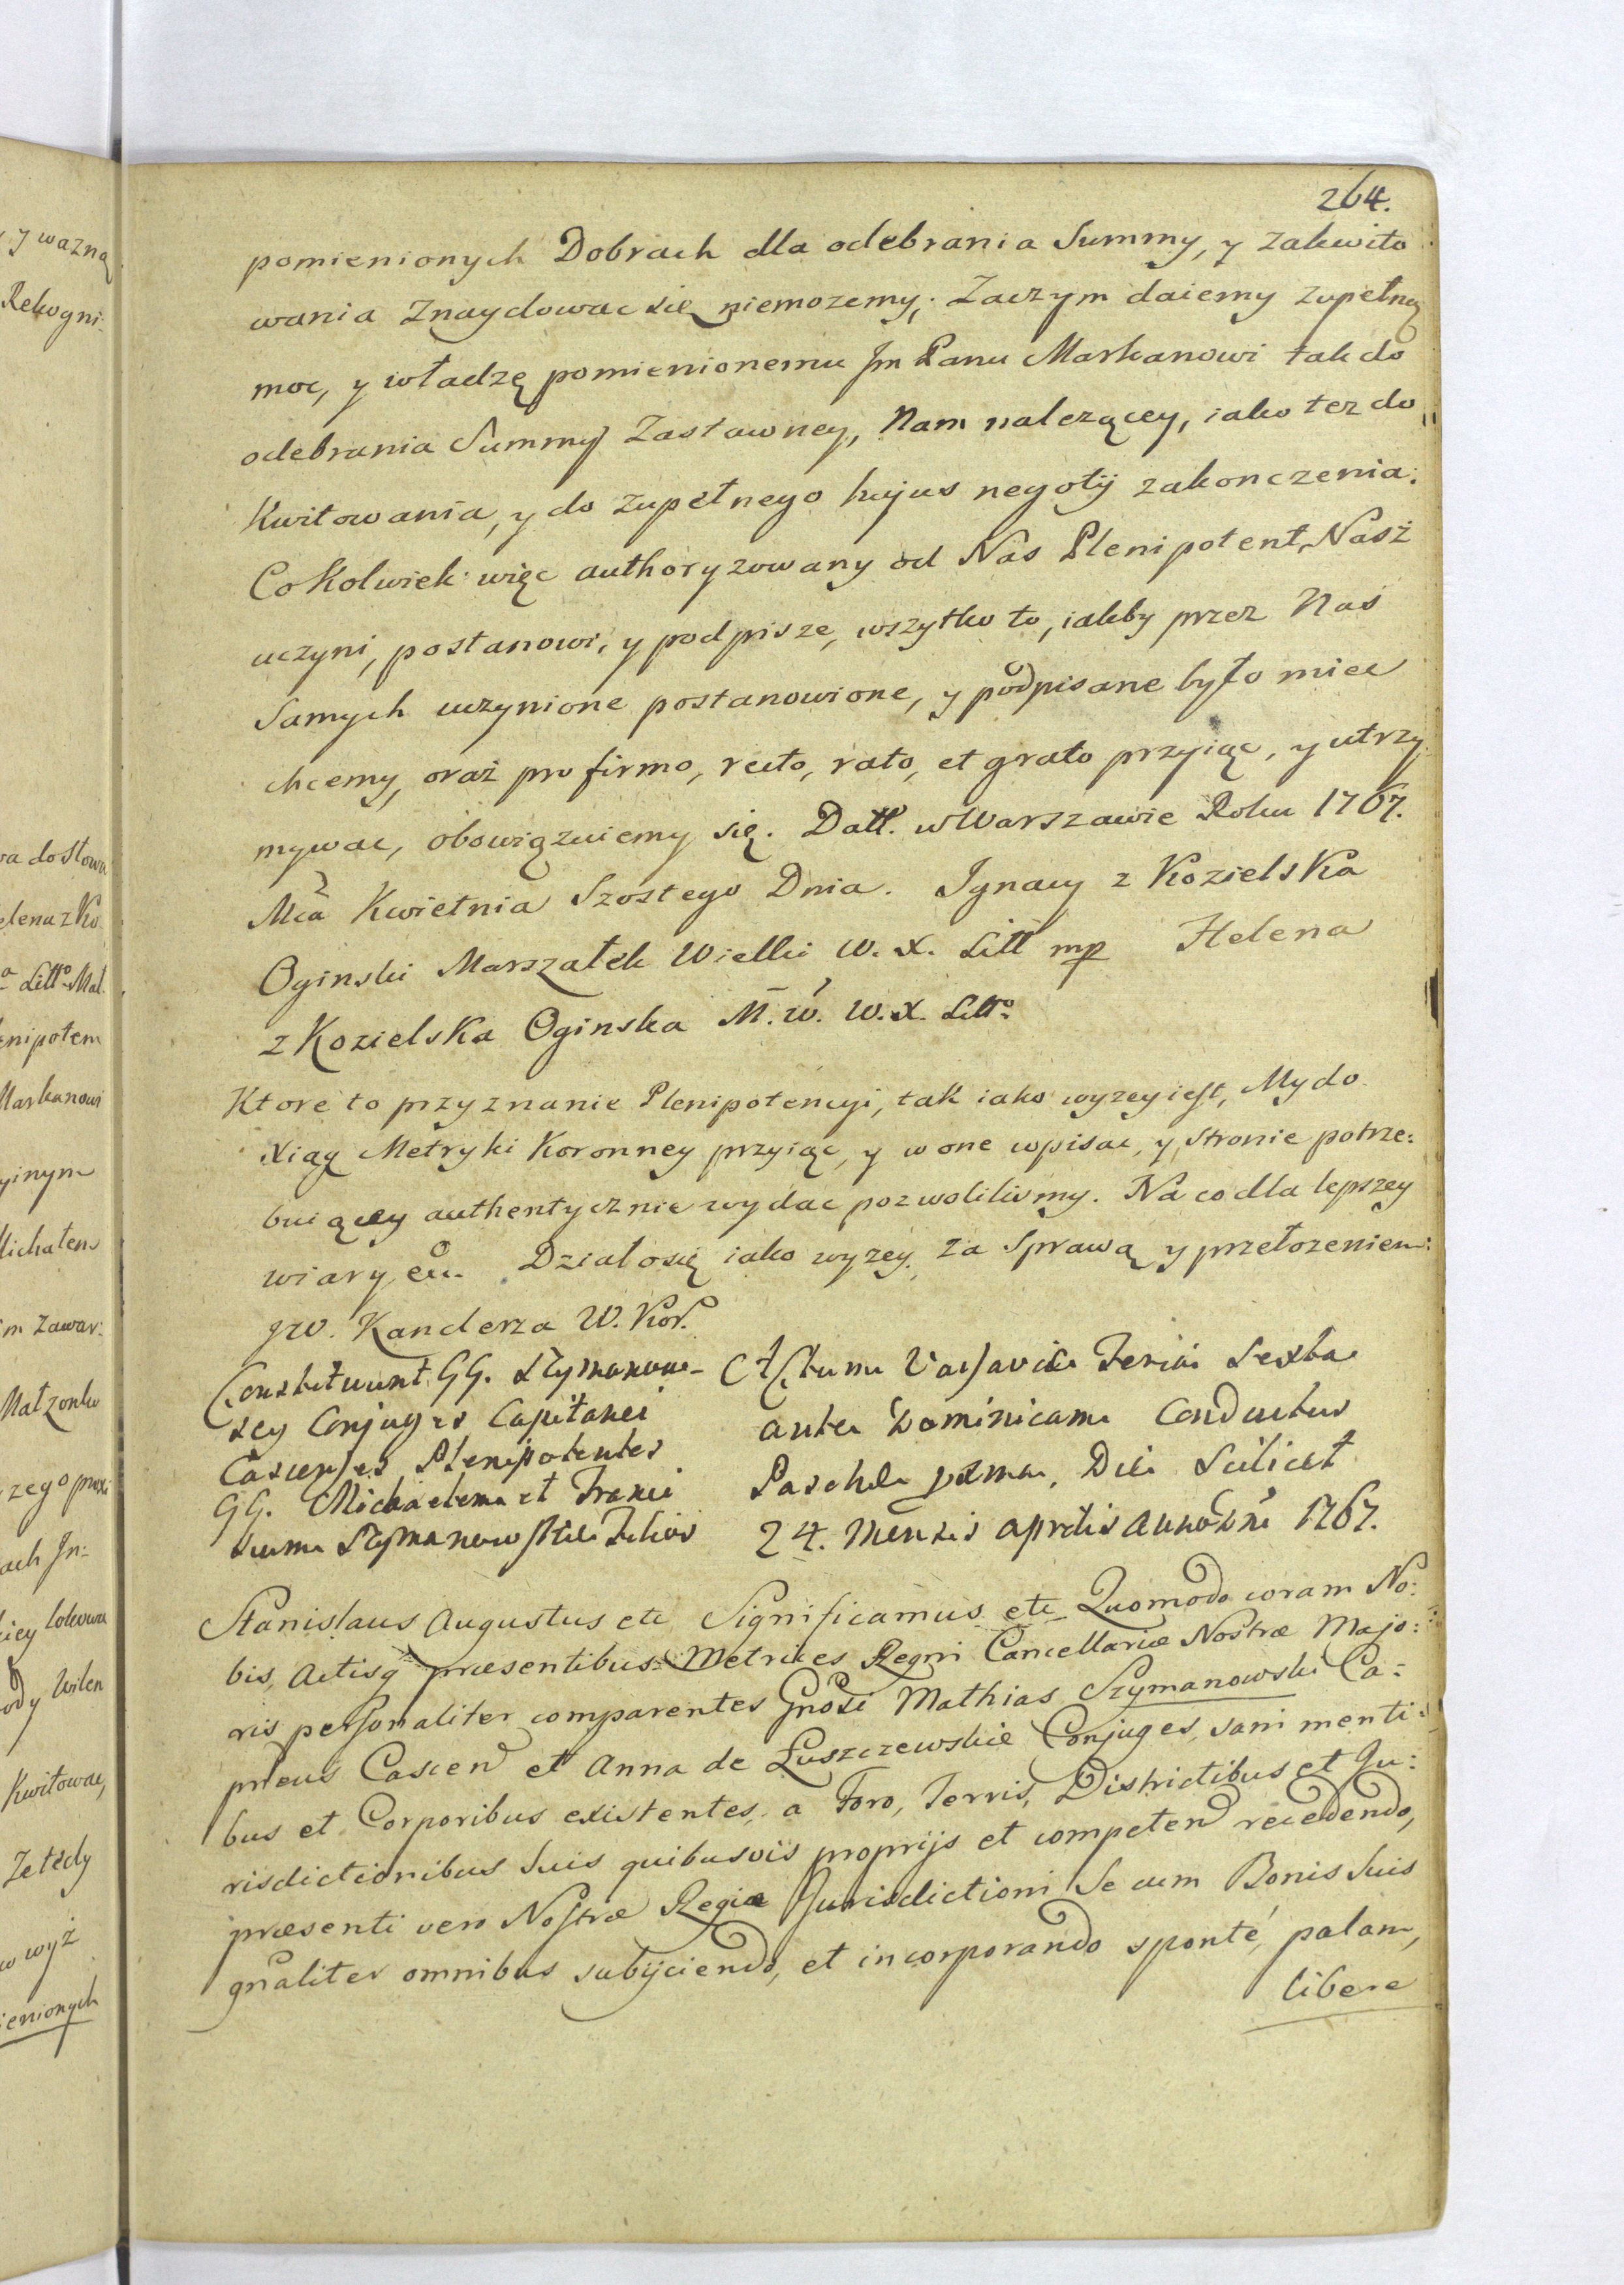 264.
pomienionych Dobrach dla odebrania Summy, y zakwito
wania Znaydowac się niemozemy; Zaczym daiemy zupełną
moc, y władzę pomienionemu Jm Panu Markanowi tak do
odebrania Summy Zastawney, Nam nalezącey, iako tez do
Kwitowania, y do zupełnego hujus negotij zakonczenia:
Cokolwiek więc authoryzowany od Nas Plenipotent Nasż
uczyni, postanowi, y podpisze, wszytko to, iakby przez Nas
Samych uczynione postanowione, y podpisane było miec
chcemy, oraż pro firmo, recto, rato, et grato przyiąc, y utrzy
mywac, obowiązuiemy się. Datt. w Warszawie Roku 1767.
Mca Kwietnia Szostego Dnia. Ignacy z Kozielska
Oginski Marszałek Wielki W. X. Litt mp Helena
z Kozielska Oginska M. W. W. X. Litto
Ktore to przyznanie Plenipotencyi, tak iako wyzey iest, My do
Xiąg Metryki Koronney przyiąc, y w one wpisac, y Stronie potrze:
buiącey authentycznie wydac pozwolilismy. Na co dla lepszey
wiary, etc. Działosię iako wyzey. Za Sprawą y przełozeniem
JW. Kanclerza W. Kor.
Constituunt GG. Szymanow-
scy Conjuges Capitanei
Cascenses Plenipotentes
GG. Michaelem et Franci
scum Szymanowskie Filios
Actum Varsaviae Feria Sexta
ante Dominicam Conductus
Paschae pxma, Die Scilicet
24. Mensis aprilis Anno Dni 1767.
Stanislaus Augustus etc Significamus etc Quomodo coram No:
bis, Actisq praesentibus Metrices Regni Cancellariae Nostrae Majo:
ris personaliter comparentes Gnosi Mathias Szymanowski Ca:
pneus Cascen et Anna de Łuszczewskie Conjuges, sani menti:
bus et Corporibus existentes, a Foro, Terris, Districtibus et Ju:
risdictionibus Suis quibusvis proprijs et competen recedendo,
praesenti vero Nostrae Regiae Jurisdictioni Se cum Bonis Suis
gnaliter omnibus subijciendo, et incorporando sponté, palam,
libere